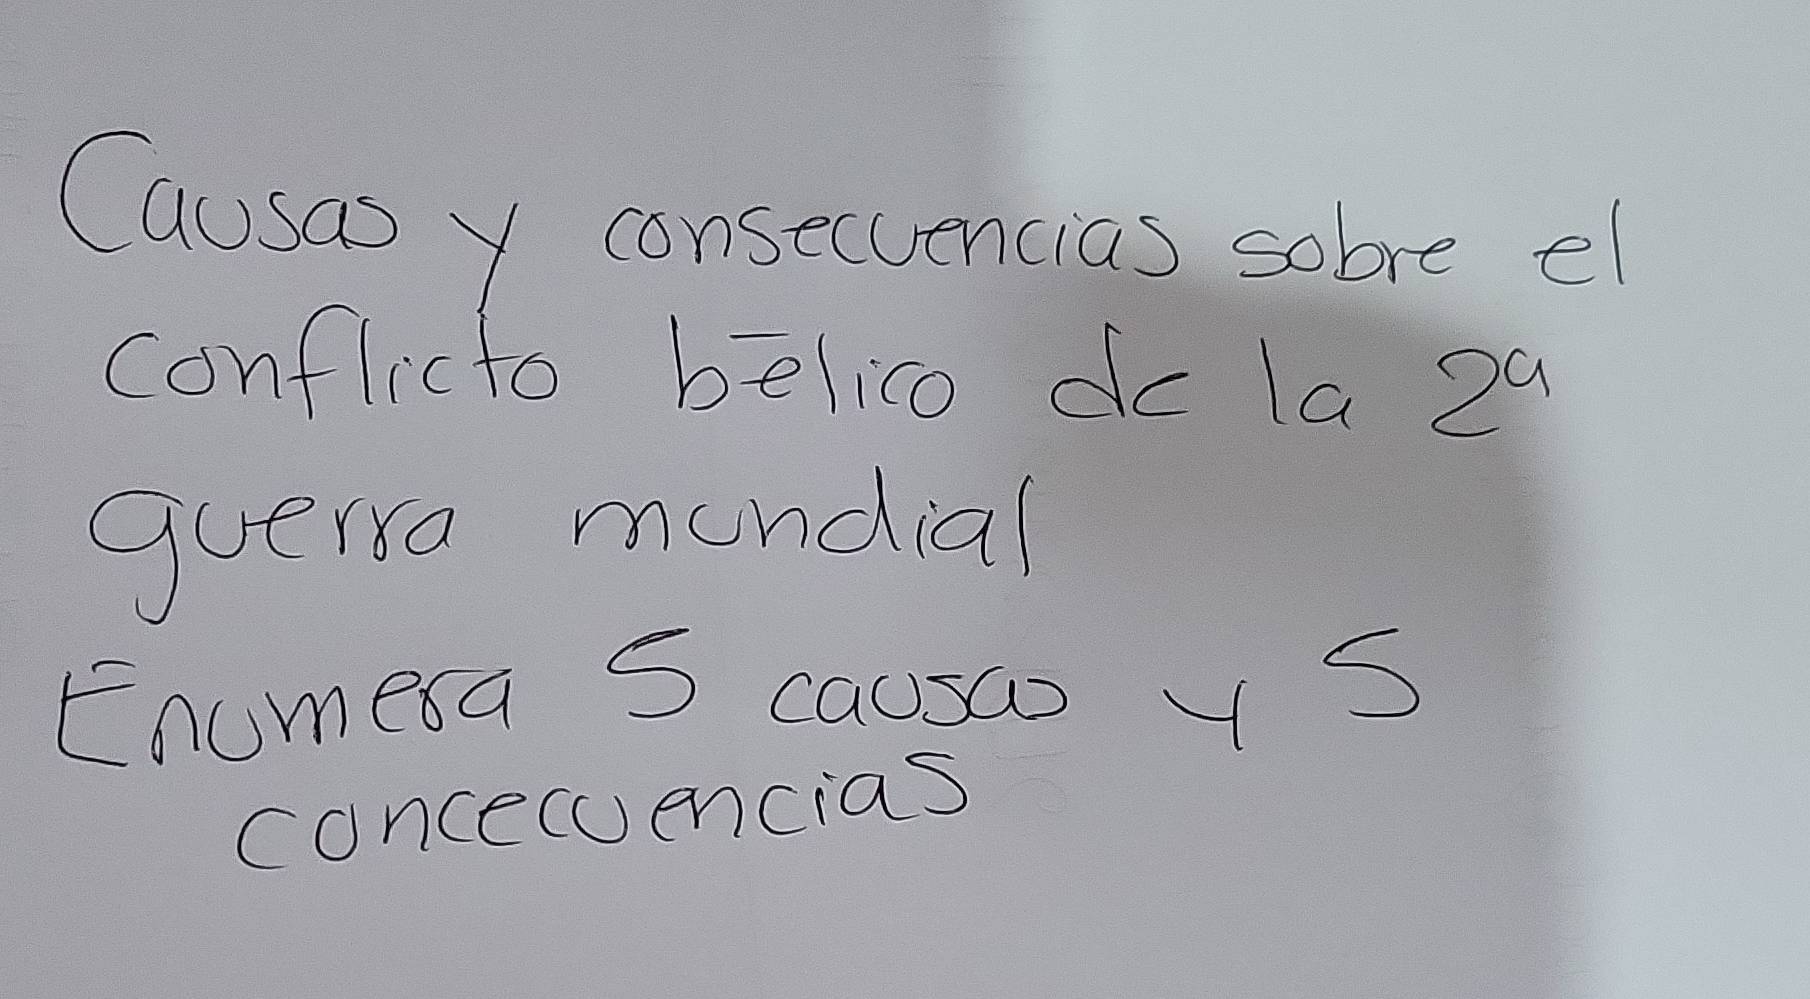 Causas y consecuencias sobre el
conflicto bélico de la 2ª
guerra mundial
Enumera 5 causas y 5
concecuencias